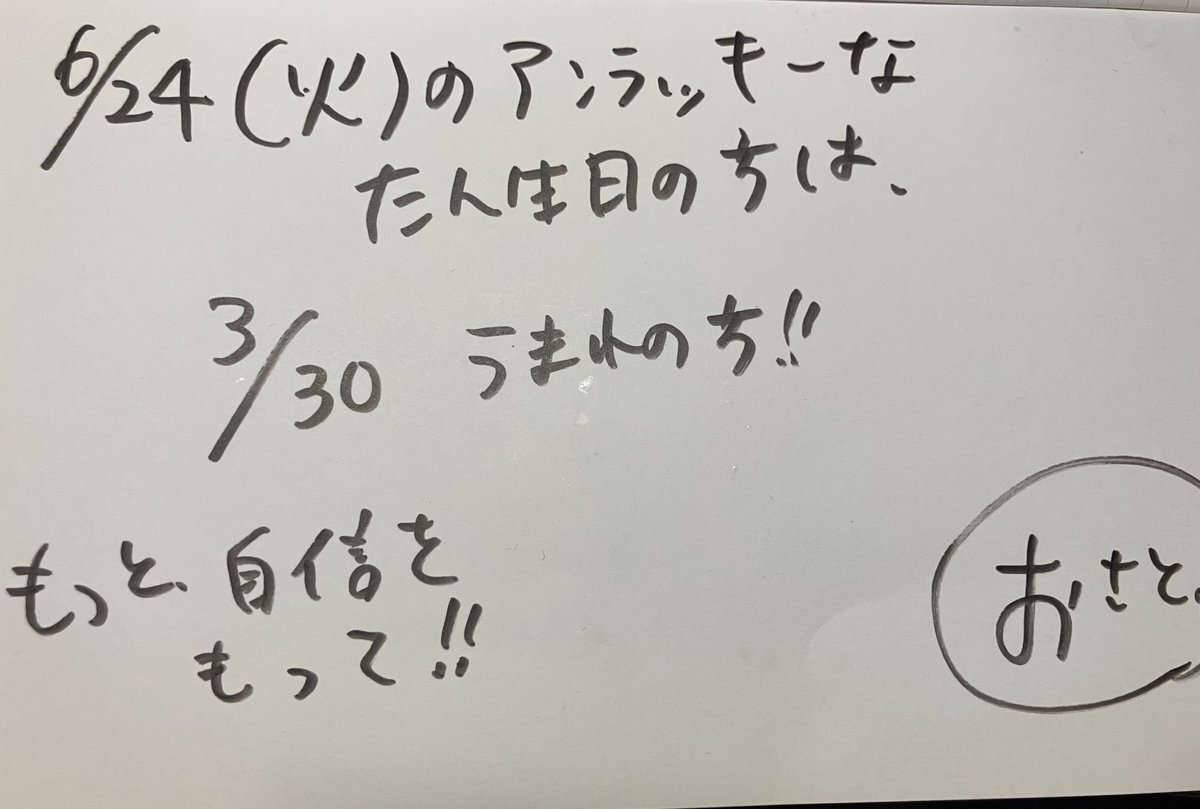 6/24(火)のアンラッキーな
たん生日の方は、
3/30 うまれの方!!
もっと、自信を
もって!!
おさと.